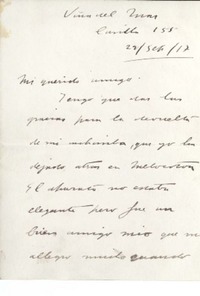 Viña del Mar
Casilla 155
22/Set/17
Mi querido amigo:
Tengo que dar las
gracias para la devuelta
de mi sobrinita, que yo he
dejado atrás en
El no estaba
elegante pero fue un
buen amigo mío que me
allegro mucho cuando